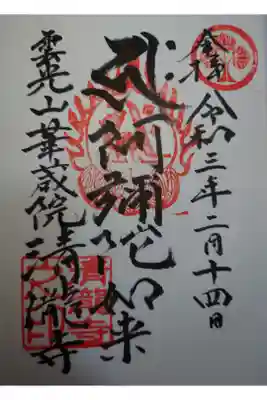 奉拝
令和三年二月十四日
阿彌陀如来
雲光山華蔵院清瀧寺